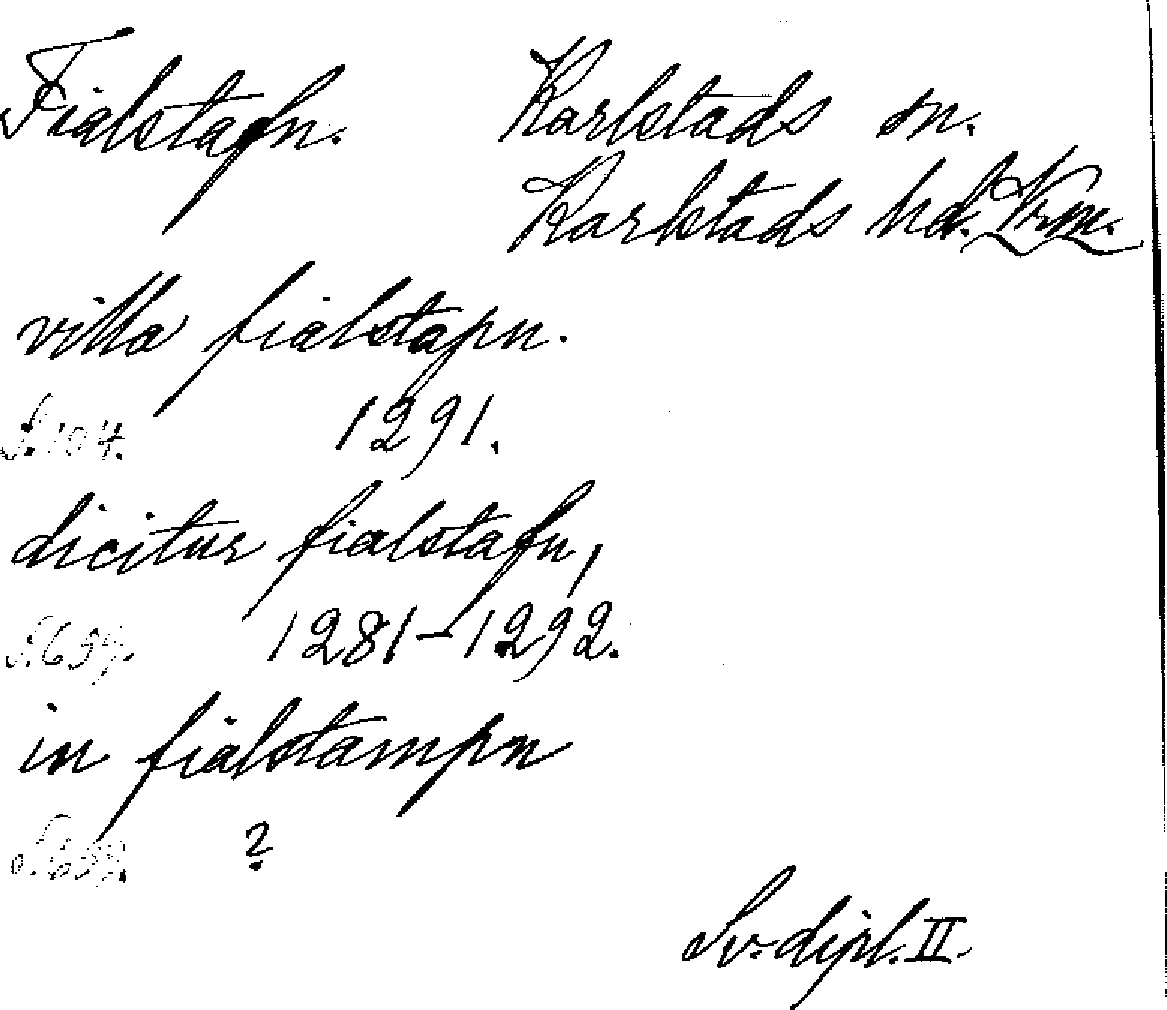 Fialstafn. Karlstads sn.
Karlstads hd. Vrm.
villa fialstapn.
S. 104. 1291.
dicitur fialstafn,
1281-1292.
in fialstampn
?
Sv. dipl. II.